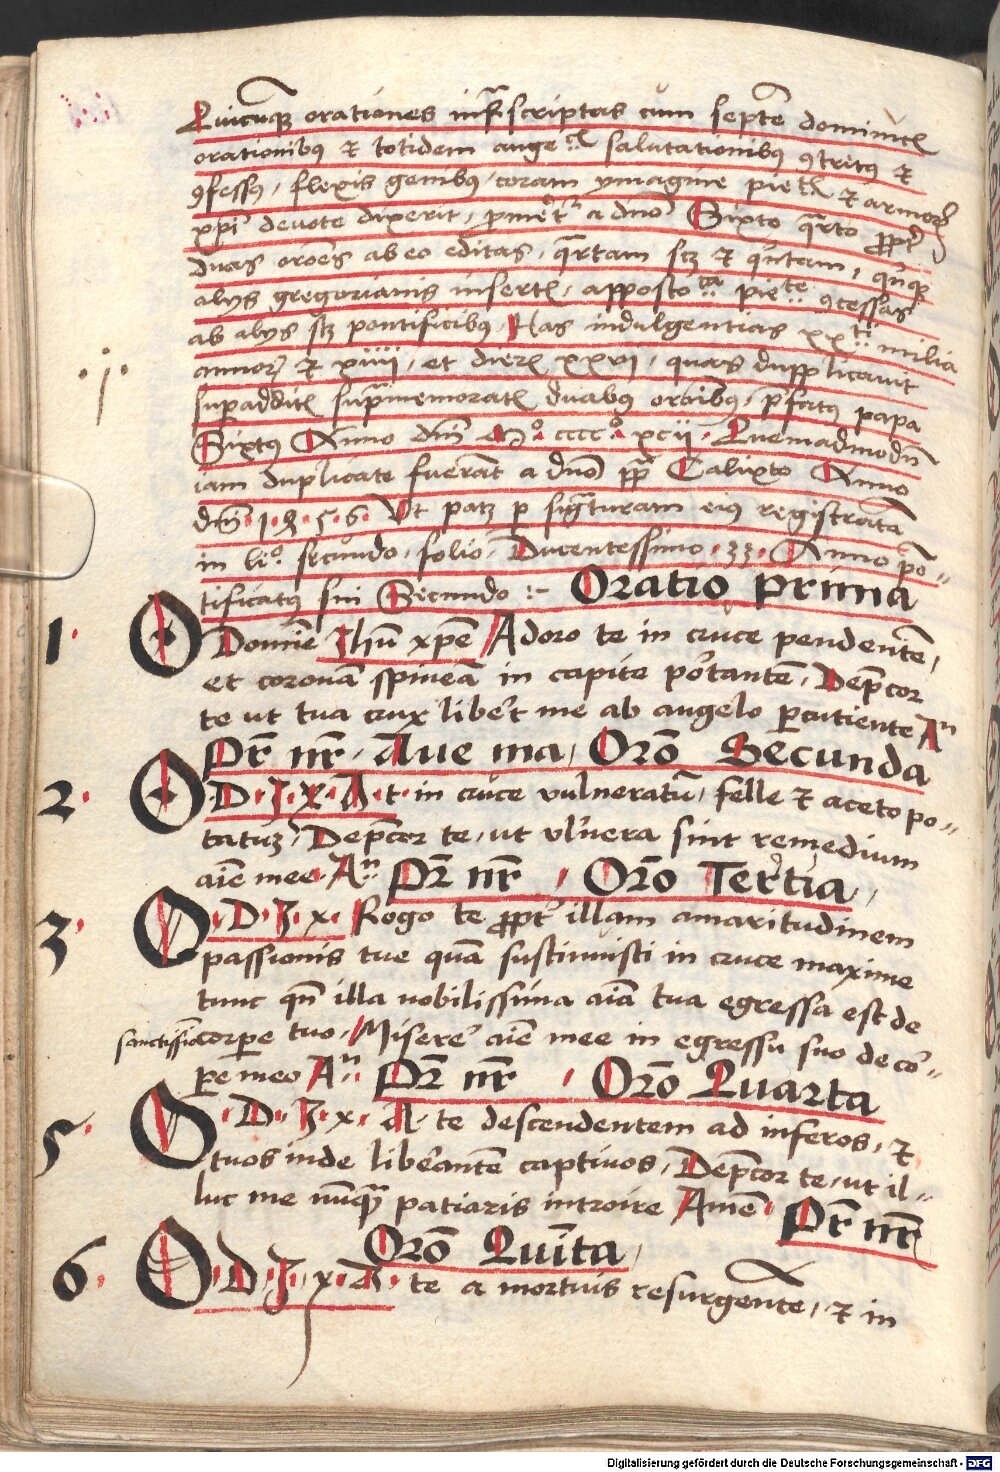 Quicunque orationes infrascriptas cum septe dominicl
orationibus et totidem angelic salutationibus 9tritus et
9fessus, flexis genibus, coram ymagine pietl et armorum
xpi devote dixerit, a dno Sixto qrto ppt
duas oroes ab eo editas, qrtam scz et quintam, quinque
alys gregorianis insertl, 9cessas
ab alys scz pontificibus, Has indulgentias xx ti milia
annor et xiiii, et dierl xxvi, quas dupplicavit
superadditl supramemoratl duabus orbibus, pfatus papa
Sixtus Anno dni Mo cccco xcii. Quemadmodu
iam duplicate fuerat a dno pp Calixto Anno
dni 1856. Ut patz p signaturam eius registrata
in lio secundo, folio, Ducentessimo, 33. Anno po=
tificatus sui Secundo :- Oratio prima
1. O Domine Jhu xpe Adoro te in cruce pendente,
et corona spinea in capite portante. Depcor
te ut tua crux liberet me ab angelo percutiente An
Pr nr. Aue ma, Oro Secunda
2. O D. J. X. A. t. in cruce vulneratu, felle et aceto po=
tatuz, Depcor te, ut vulnera sint remedium
aie mee An Pr nr, Oro Tertia,
3. O. D. J. x. Rogo te ppt illam amaritudinem
passionis tue qua sustinuisti in cruce maxime
tunc qn illa nobilissima aia tua egressa est de
sanctissio corpe tuo. Misere aie mee in egressu suo de co=
pe meo An Pr nr, Oro Quarta
5. O. D. J. x. A. te descendentem ad inferos, et
tuos inde liberante captivos, Depcor te, ut il=
luc me nunqua patiaris introire Ame. Pr nr
Oro Quinta,
6. O. D. J. x. A. te a mortuis resurgente, et in
Digitalisierung gefördert durch die Deutsche Forschungsgemeinschaft - DFG